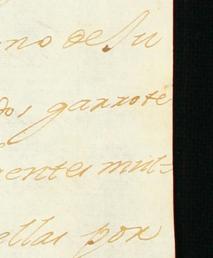 no de su
dos garrote
entes mul-
ellas por